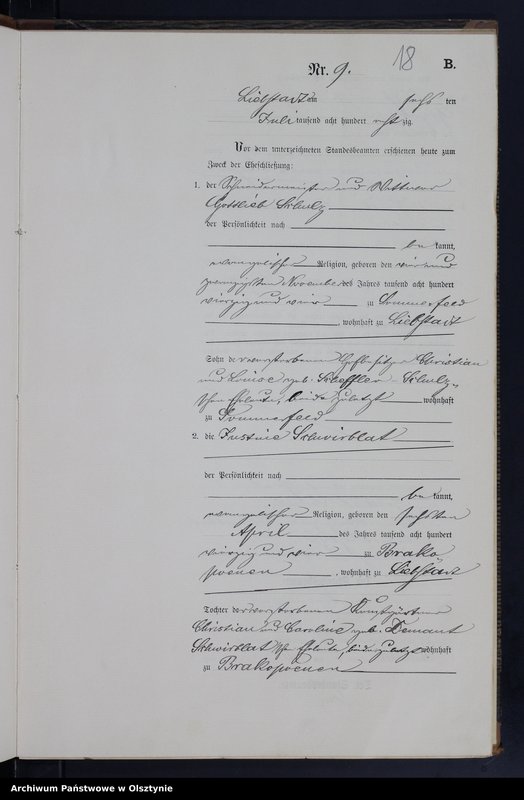 18
Nr. 9.
B.
Liebstadt am sechs ten
Juli tausend acht hundert acht zig.
Vor dem unterzeichneten Standesbeamten erschienen heute zum
Zweck der Eheschließung:
1. der Schneidermeister und Wittwer
Gottlieb Schulz
der Persönlichkeit nach
be kannt,
evangelischer Religion, geboren den vier und
zwanzigsten November des Jahres tausend acht hundert
vierzig und vier zu Sommerfeld
, wohnhaft zu Liebstadt
Sohn der verstorbenen Hofbesitzer Christian
und Louise geb. Scheffler - Schulz
schen Eheleute, beide zuletzt wohnhaft
zu Sommerfeld
2. die Justine Schwirblat
der Persönlichkeit nach
be kannt,
evangelischer Religion, geboren den sechsten
April des Jahres tausend acht hundert
vierzig und vier zu Brako
, wohnhaft zu Liebstadt
Tochter der verstorbenen Kunstgärtner
Christian und Caroline geb. Demant
Schwirblat schen Eheleute, beide zuletzt wohnhaft
zu
Archiwum Państwowe w Olsztynie